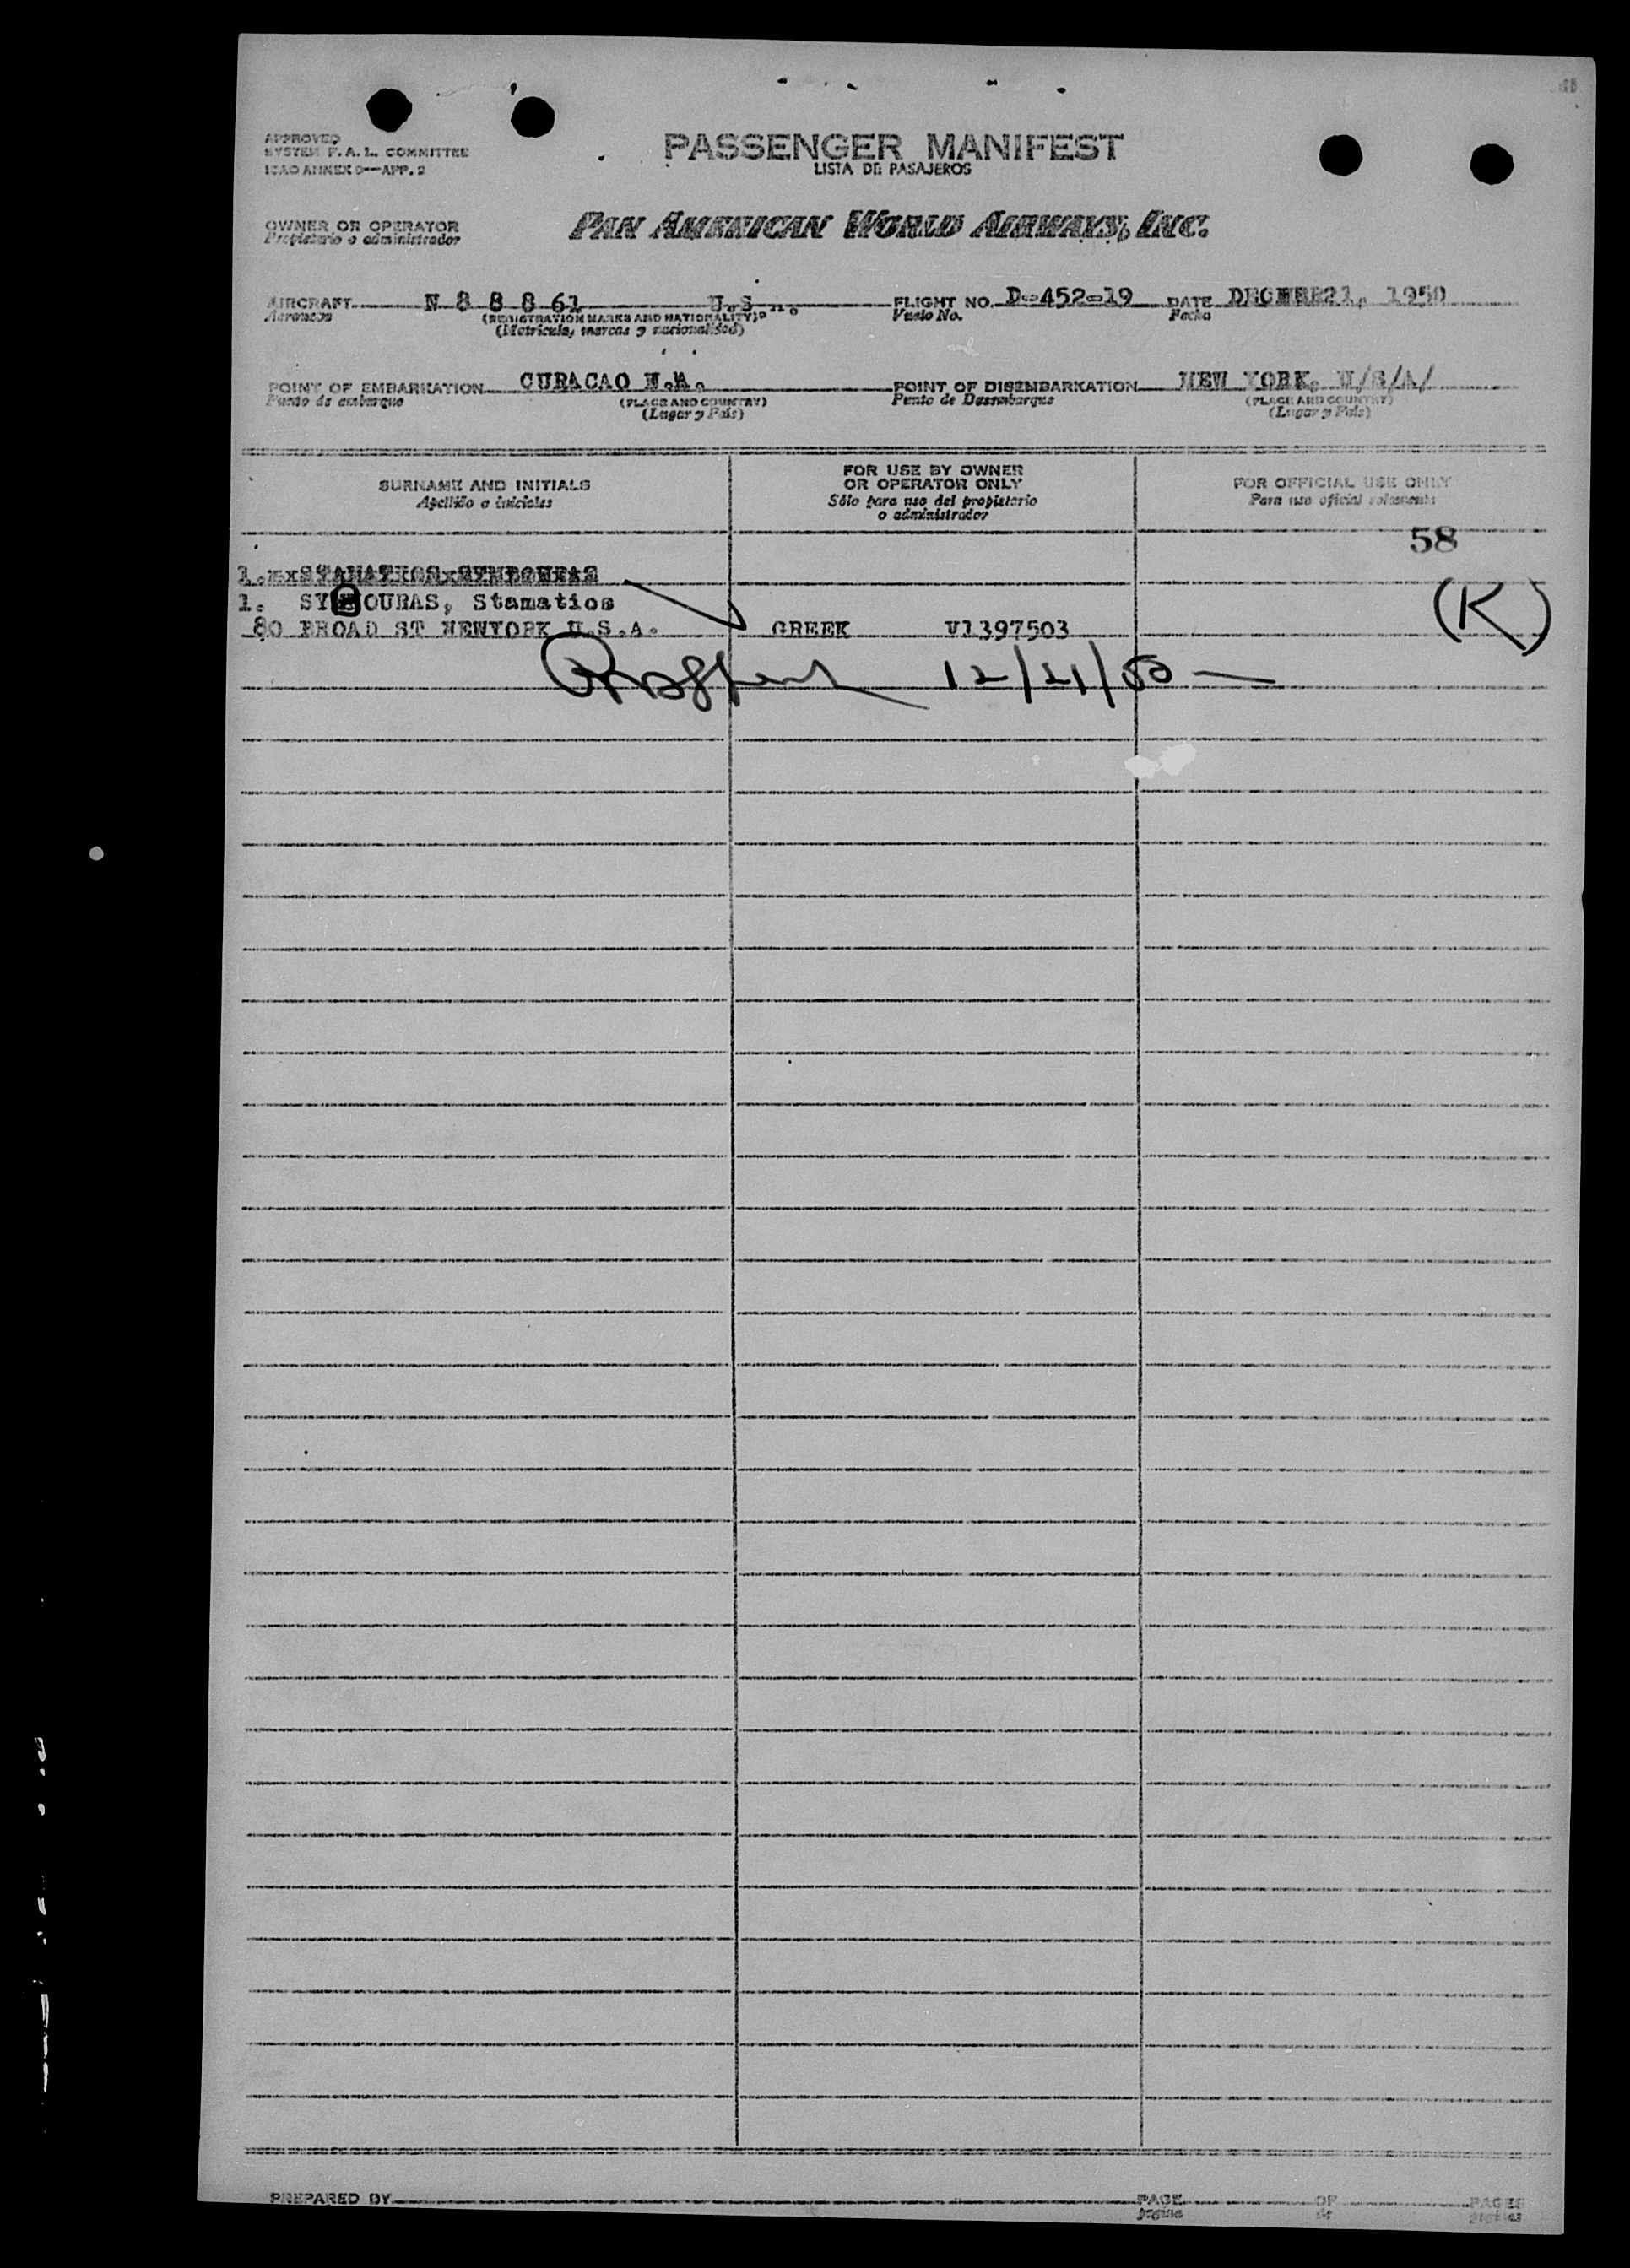 APPROVED
SYSTEM F. A. L. COMMITTEE
ICAO ANNEX 9—APP. 2
PASSENGER MANIFEST
LISTA DE PASAJEROS
OWNER OR OPERATOR
Propietario o administrador
PAN AMERICAN WORLD AIRWAYS, INC.
AIRCRAFT N 8 8 8 61 U.S. FLIGHT NO. D-452-19 DATE 21, 1950
Aeronave (REGISTRATION MARKS AND NATIONALITY) Vuelo No. Fecha
(Matricula, marcas y nacionalidad)
POINT OF EMBARKATION CURACAO N.A. POINT OF DISEMBARKATION NEW YORK, U/S/A/
Punto de embarque (PLACE AND COUNTRY) Punto de Desembarque (PLACE AND COUNTRY)
(Lugar y País) (Lugar y País)
SURNAME AND INITIALS
Apellido e iniciales
FOR USE BY OWNER
OR OPERATOR ONLY
Sólo para uso del propietario
o administrador
FOR OFFICIAL USE ONLY
Para uso oficial solamente
58
1. SY OURAS, Stamatios
80 BROAD ST NEWYORK U.S.A. GREEK V1397503
(K)
12/21/50
PREPARED BY PAGE OF PAGES
página de páginas